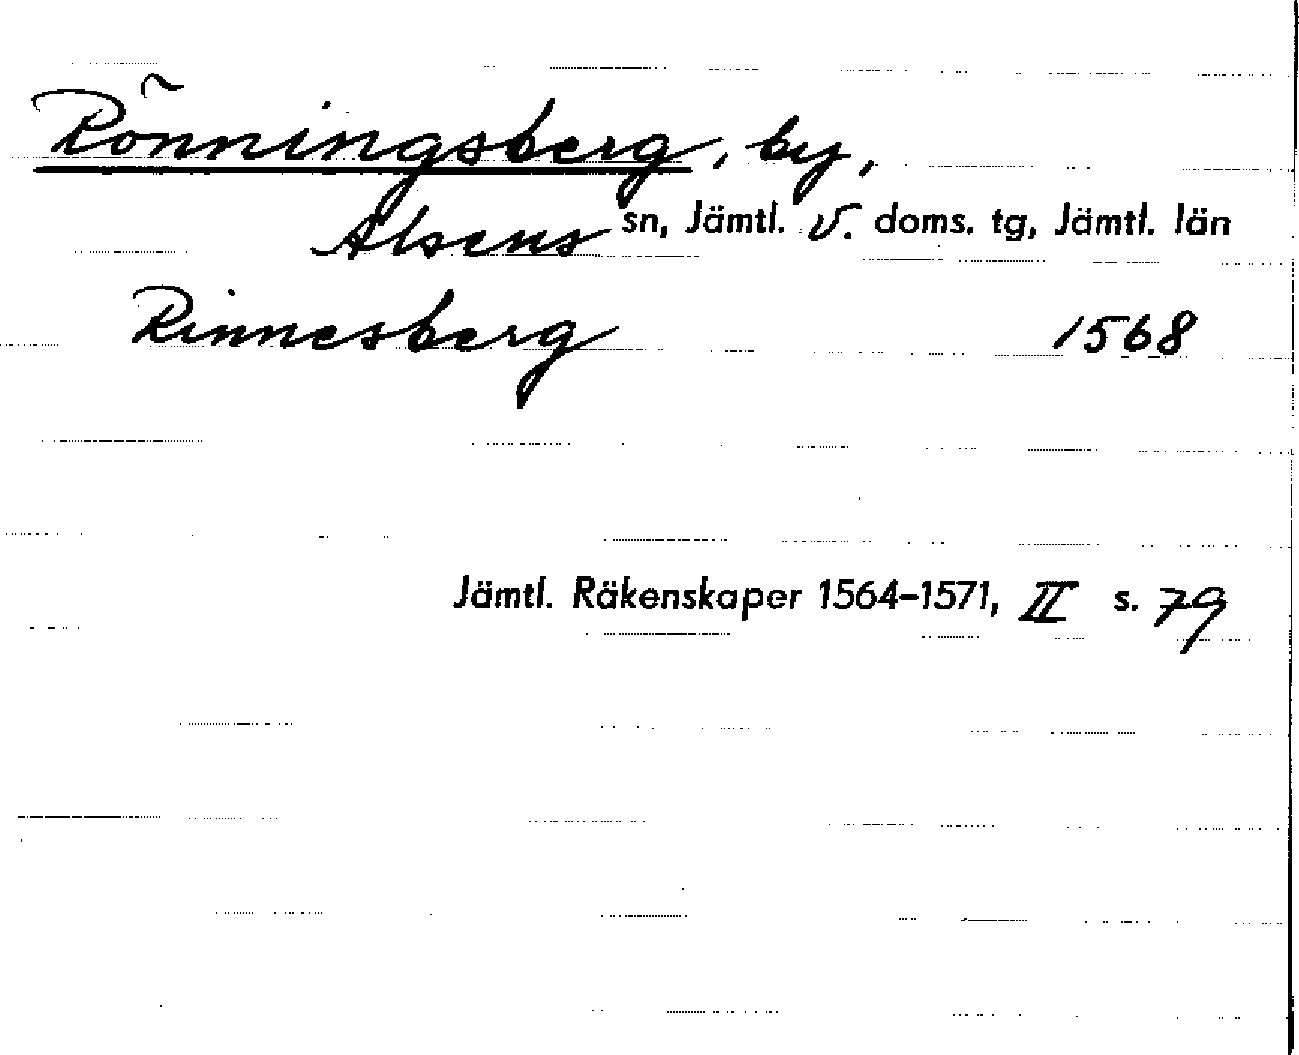 Rönningsberg, by,
Alsens sn, Jämtl. v. doms. tg, Jämtl. län
Rinnesberg 1568
Jämtl. Räkenskaper 1564-1571, II s. 79